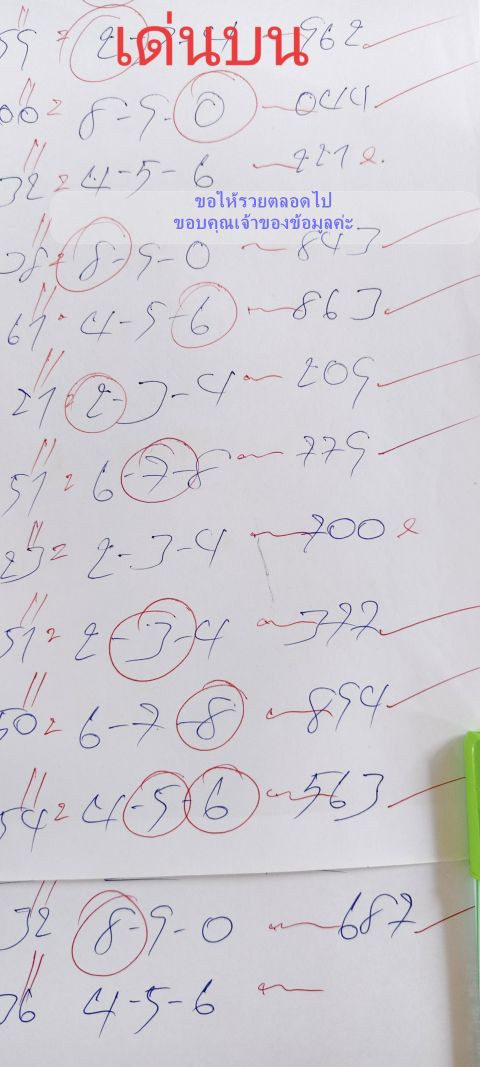 เด่นบน
59 = 2-3-4 — 962
00 = 8-9-0 — 044
32 = 4-5-6 — 221 ๙.
ขอให้รวยตลอดไป
ขอบคุณเจ้าของข้อมูลค่ะ
38 = 8-9-0 — 843
61 = 4-5-6 — 863
21 = 2-3-4 — 209
51 = 6-7-8 — 779
23 = 2-3-4 — 700 ๙
51 = 2-3-4 — 377
50 = 6-7-8 — 894
54 = 4-5-6 — 563
32 8-9-0 — 687
36 4-5-6 —